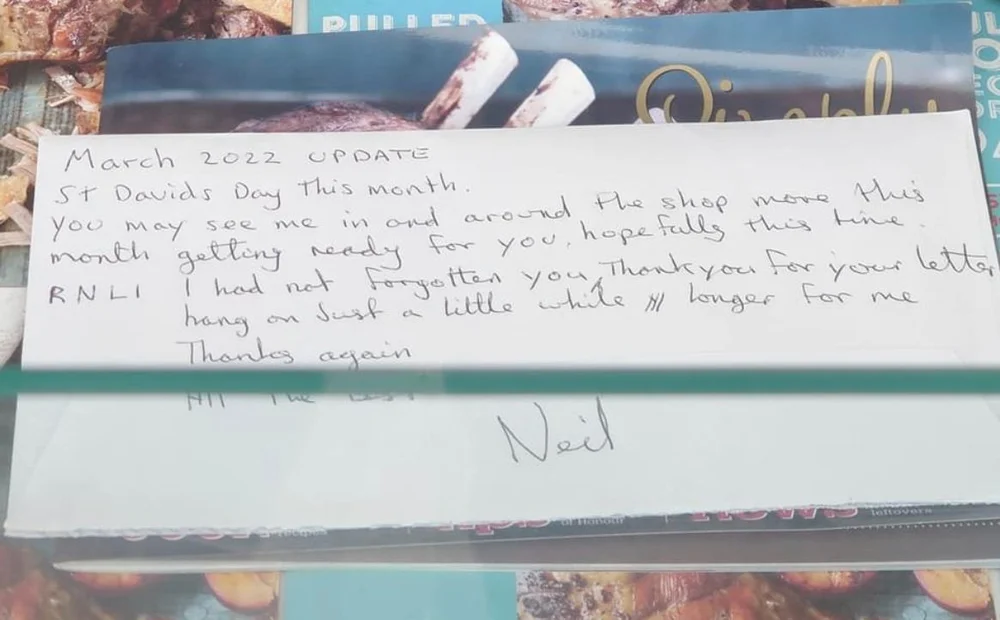 PULLED
Simply
March 2022 UPDATE
St Davids Day this month.
You may see me in and around the shop more this
month getting ready for you, hopefully this time.
RNLI I had not forgotten you, Thankyou for your letter
hang on Just a little while longer for me
Thanks again
All The best
Neil
recipes
of Honour
news
leftovers